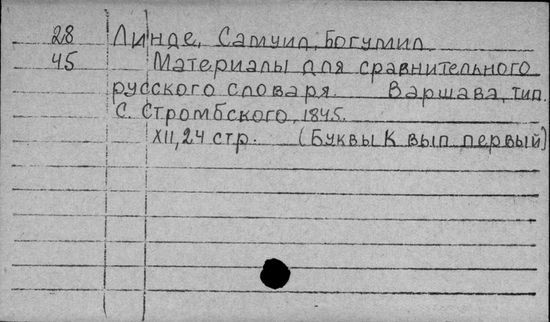 28 Линде, Самуил Богумил
45 Материалы для сравнительного
русского словаря. Варшава, тип.
С. Стромбского, 1845.
XII, 24 стр. (Буквы К вып. первый)